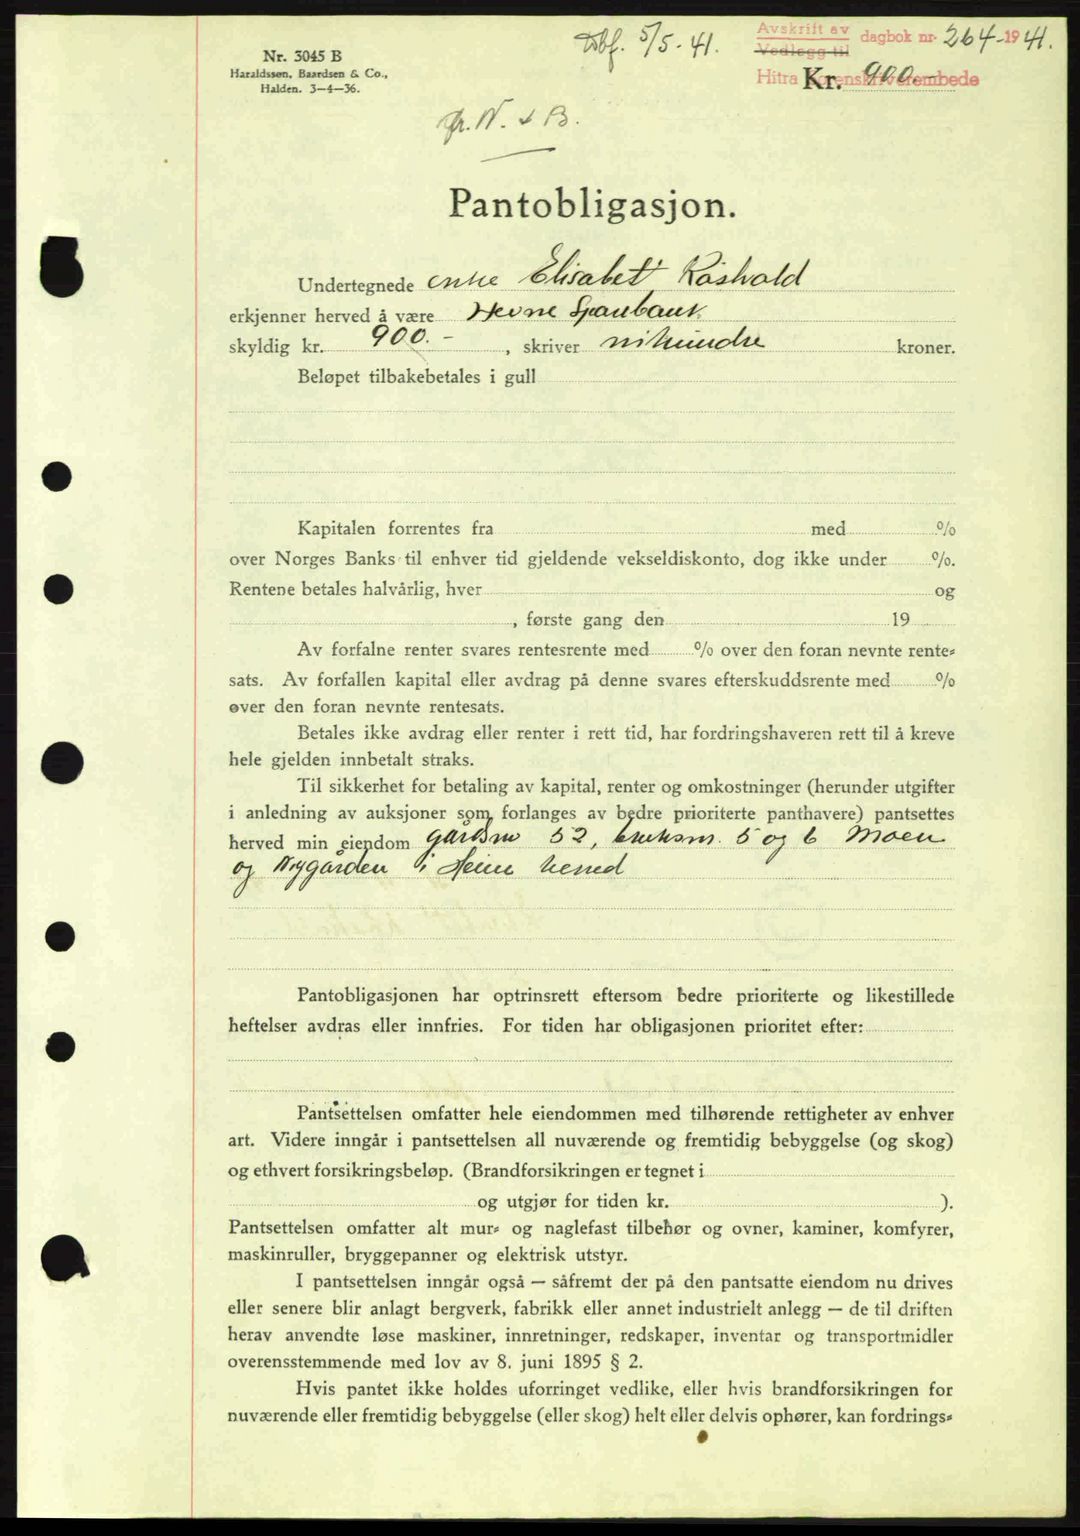 Nr. 3045 B
Haraldssøn, Baardsen & Co.,
Halden. 3-4-36.
Dbf. 5/5-41.
Avskrift av
Vedlegg til
dagbok nr. 264-1941.
Hitra Sorenskriverembede
Kr. 900.-
N. & B.
Pantobligasjon.
Undertegnede enke Elisabet Råshold
erkjenner herved å være Hevne Sparebank
skyldig kr. 900.-, skriver nihundre kroner.
Beløpet tilbakebetales i gull
Kapitalen forrentes fra med %
over Norges Banks til enhver tid gjeldende vekseldiskonto, dog ikke under %.
Rentene betales halvårlig, hver og
, første gang den 19
Av forfalne renter svares rentesrente med % over den foran nevnte rente-
sats. Av forfallen kapital eller avdrag på denne svares efterskuddsrente med %
over den foran nevnte rentesats.
Betales ikke avdrag eller renter i rett tid, har fordringshaveren rett til å kreve
hele gjelden innbetalt straks.
Til sikkerhet for betaling av kapital, renter og omkostninger (herunder utgifter
i anledning av auksjoner som forlanges av bedre prioriterte panthavere) pantsettes
herved min eiendom gårdsnr 52, bruksnr. 5 og 6 Moen
og Nygården i Heim herred
Pantobligasjonen har optrinsrett eftersom bedre prioriterte og likestillede
heftelser avdras eller innfries. For tiden har obligasjonen prioritet efter:
Pantsettelsen omfatter hele eiendommen med tilhørende rettigheter av enhver
art. Videre inngår i pantsettelsen all nuværende og fremtidig bebyggelse (og skog)
og ethvert forsikringsbeløp. (Brandforsikringen er tegnet i
og utgjør for tiden kr. ).
Pantsettelsen omfatter alt mur- og naglefast tilbehør og ovner, kaminer, komfyrer,
maskinruller, bryggepanner og elektrisk utstyr.
I pantsettelsen inngår også — såfremt der på den pantsatte eiendom nu drives
eller senere blir anlagt bergverk, fabrikk eller annet industrielt anlegg — de til driften
herav anvendte løse maskiner, innretninger, redskaper, inventar og transportmidler
overensstemmende med lov av 8. juni 1895 § 2.
Hvis pantet ikke holdes uforringet vedlike, eller hvis brandforsikringen for
nuværende eller fremtidig bebyggelse (eller skog) helt eller delvis ophører, kan fordrings-